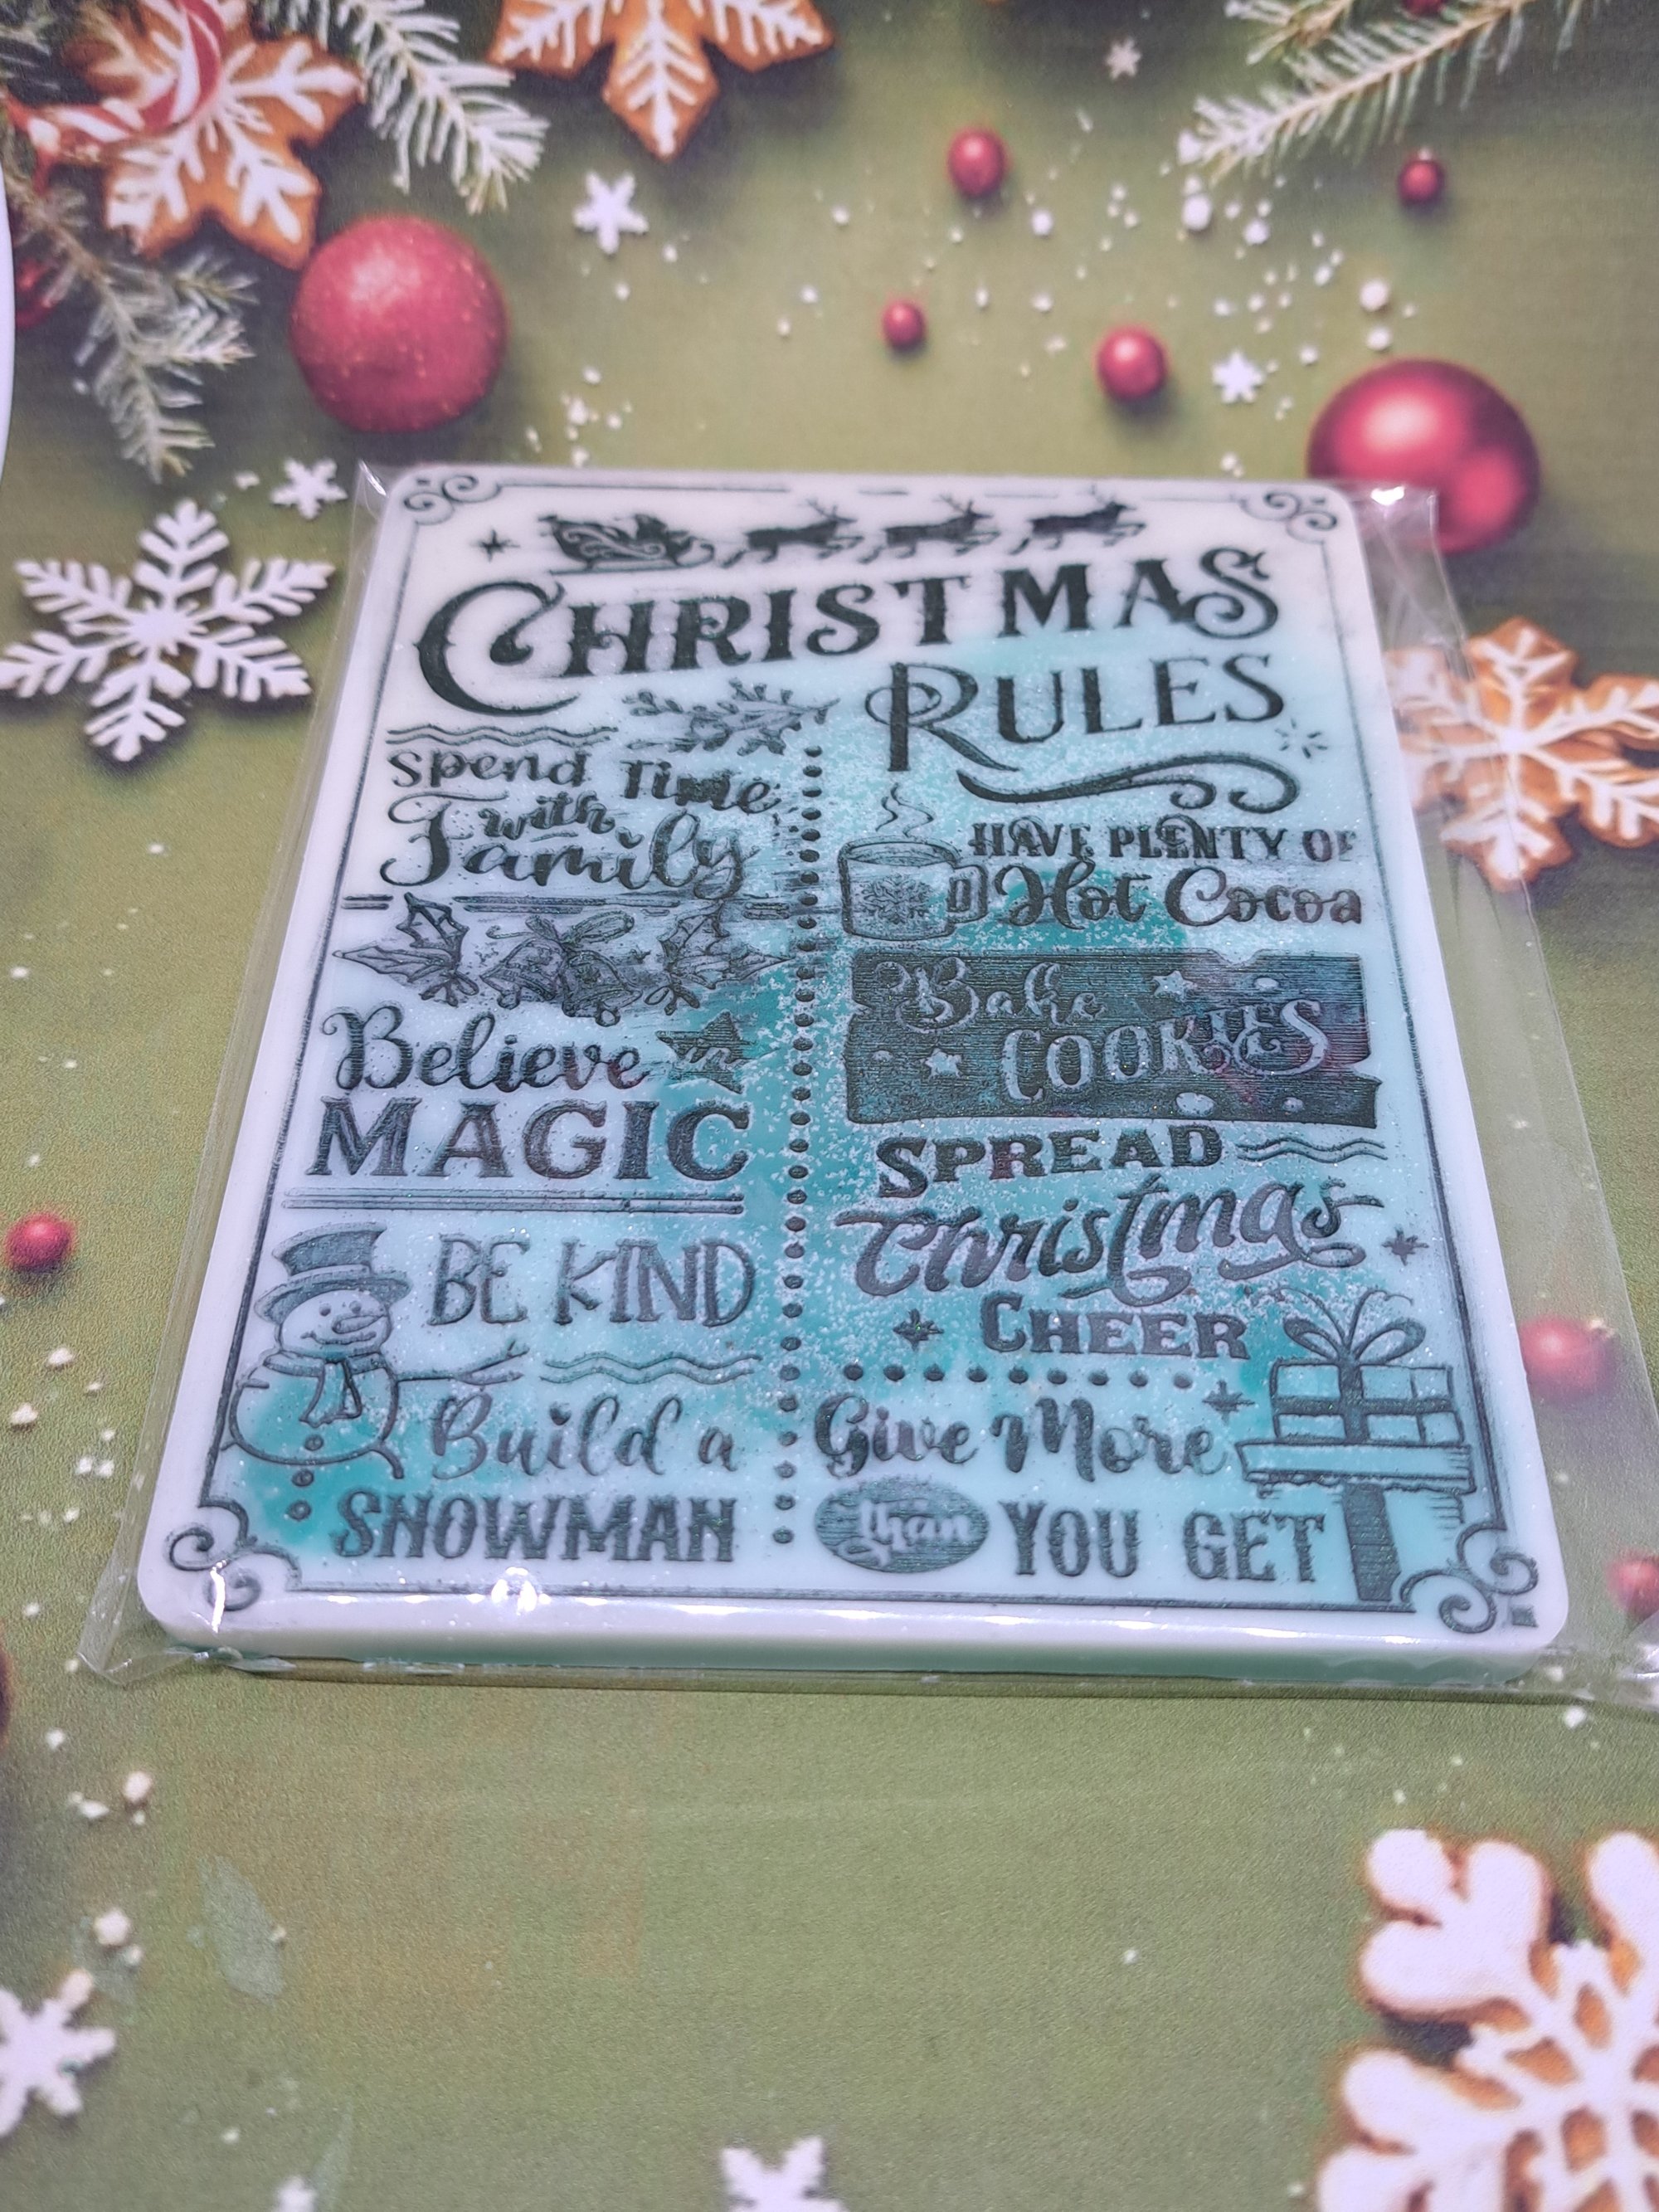 CHRISTMAS
RULES
Spend Time
with
Family
Believe
in
MAGIC
BE KIND
Build a
SNOWMAN
HAVE PLENTY OF
Hot Cocoa
Bake
COOKIES
SPREAD
Christmas
CHEER
Give More
than YOU GET